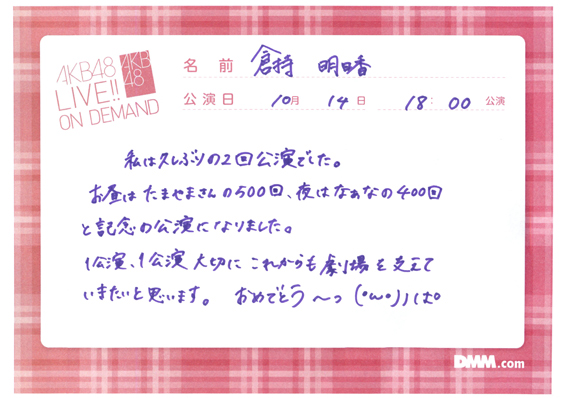 AKB48
LIVE!!
ON DEMAND
AKB
48
名 前 倉持 明日香
公演日 10月 14日 18:00 公演
私は久しぶりの2回公演でした。
お昼はたまやまさんの500回、夜はなぁなの400回
と記念の公演になりました。
1公演、1公演 大切に これからも劇場を支えて
いきたいと思います。 おめでとう〜っ (°ω°)ノ
DMM.com